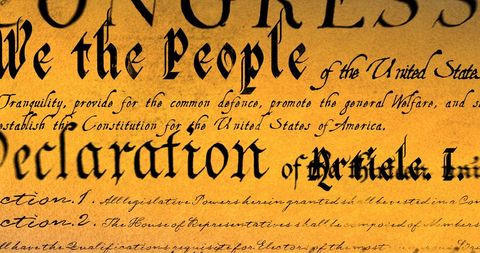 CONGRESS
We the People of the United State
Tranquility, provide for the common defence, promote the general Welfare, and s
establish this Constitution for the United States of America.
Declaration of Article. I
ction. 1. All legislative Powers herein granted shall be vested in a Con
ction. 2. The House of Representatives shall be composed of Members
ll have the Qualifications requisite for Electors of the most